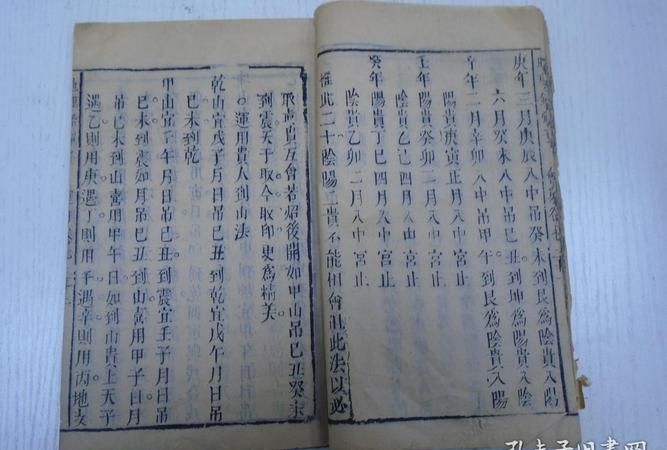 庚年三月庚辰入中吊癸未到艮爲陰貴入陽
六月癸未入中吊己丑到坤爲陽貴入陰
辛年二月辛卯入中吊甲午到艮爲陰貴入陽
陽貴庚寅正月入中宮止
壬年陽貴癸卯二月入中宮止
陰貴乙巳四月入中宮止
癸年陽貴丁巳四月入中宮止
陰貴乙卯二月入中宮止
此二十陰陽二貴不能相會此法以必
取貴互會若炤後開如甲山吊己丑癸未
到震天子取令取印更爲精美
運用貴人到山法
乾山宜戊子月日吊己丑到乾宜戊午月日吊
己未到乾
甲山宜壬午月日吊己丑到震宜壬子月日吊
己未到震如月吊己丑到山喜用甲子日月
吊己未到山喜用甲午日如到山貴上天干
遇乙則用庚遇丁則用壬遇辛則用丙地支
孔夫子旧书网